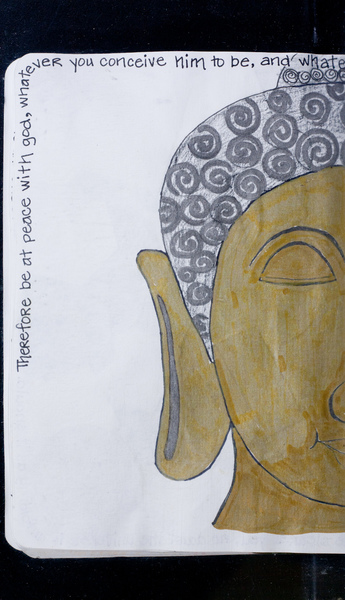 Therefore be at peace with god, whatever you conceive him to be, and whate